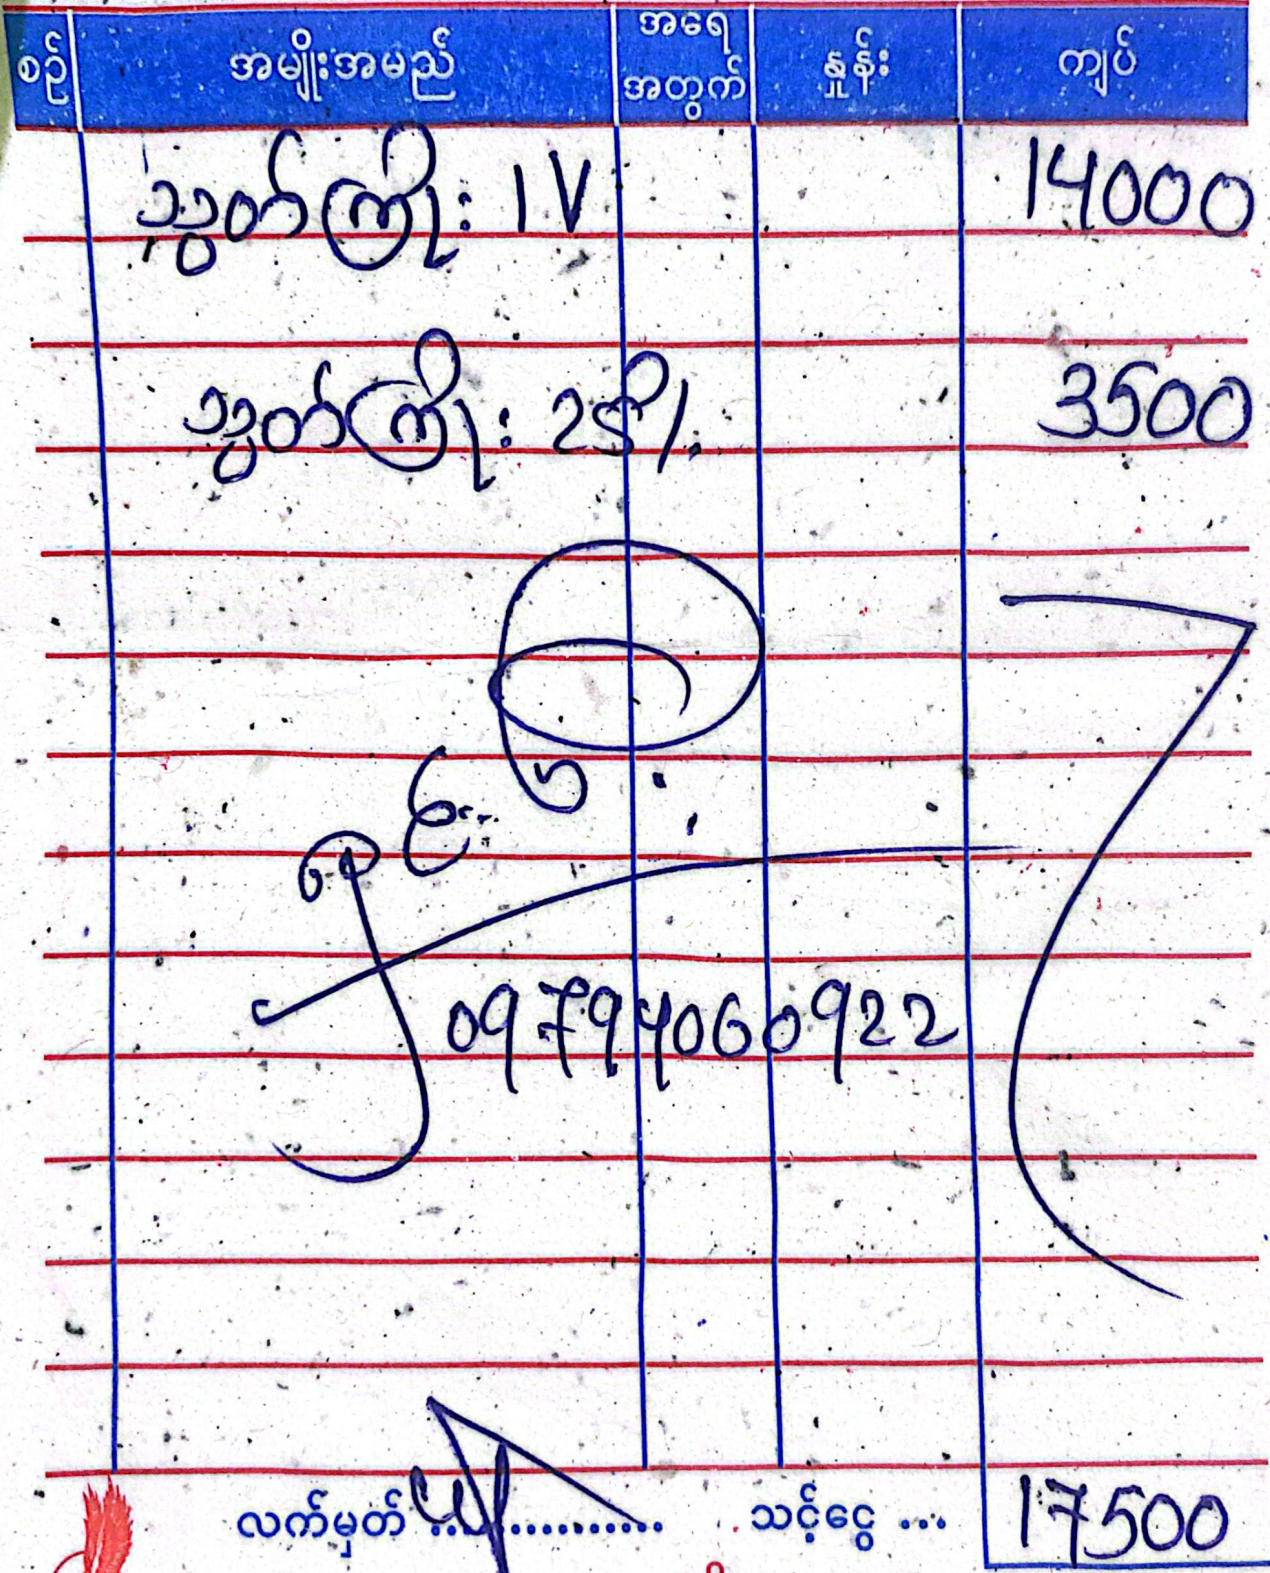 စဉ် အမျိုးအမည် အရေအတွက် နှုန်း ကျပ်
သွတ်ကြိုး 1V 14000
သွတ်ကြိုး 3500
09794060922
လက်မှတ် ............... သင့်ငွေ ... 17500